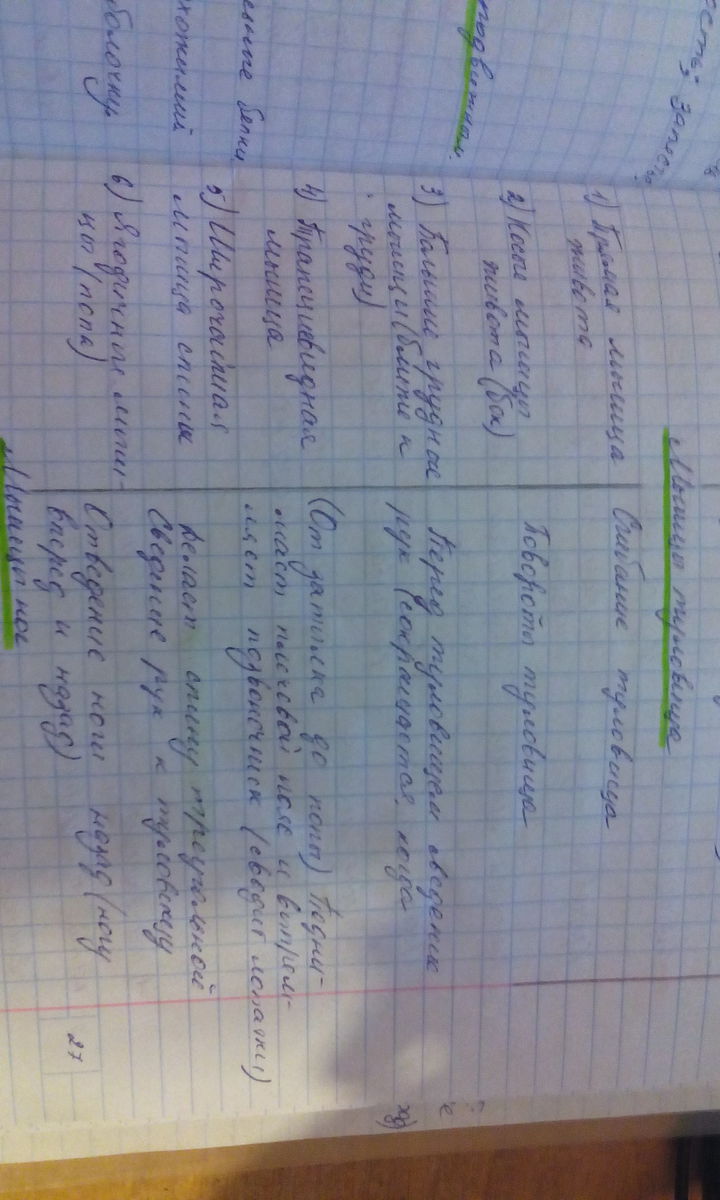 есть: Запястье
подвижная.
белки
оболочку
Мышцы туловища
1) Прямая мышца
живота
Сгибание туловища
2) Косые мышцы
живота (бок)
Повороты туловища
3) Большие грудные
мышцы (ближе к
груди)
Перед туловищем сведение
рук (сокращается, когда
4) Трапециевидная
мышца
(От затылка до попы) Подни-
мает плечевой пояс и выпрям-
ляет позвоночник (сводит лопатки)
5) Широчайшая
мышца спины
Делает спину треугольной
Сведение рук к туловищу
6) Ягодичные мыш-
цы (попа)
Отведение ноги назад (ногу
вперед и назад)
Мышцы ног
27